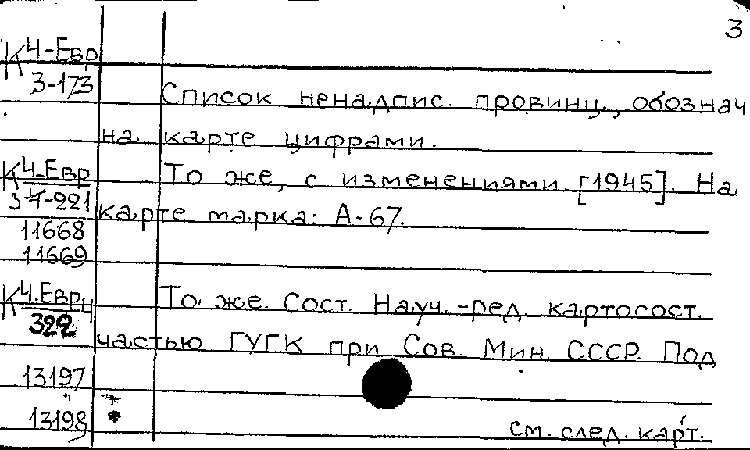 3
К Ч-Евр
3-173
Список ненадпис. провинц., обознач
на карте цифрами.
К Ч-Евр
То же, с изменениями [1945]. На
карте марка: А-67.
11668
11669
К Ч.Евр
322
То же. Сост. Науч.-ред. картосост.
частью ГУГК при Сов. Мин. СССР. Под
13197
13198
см. след. карт.